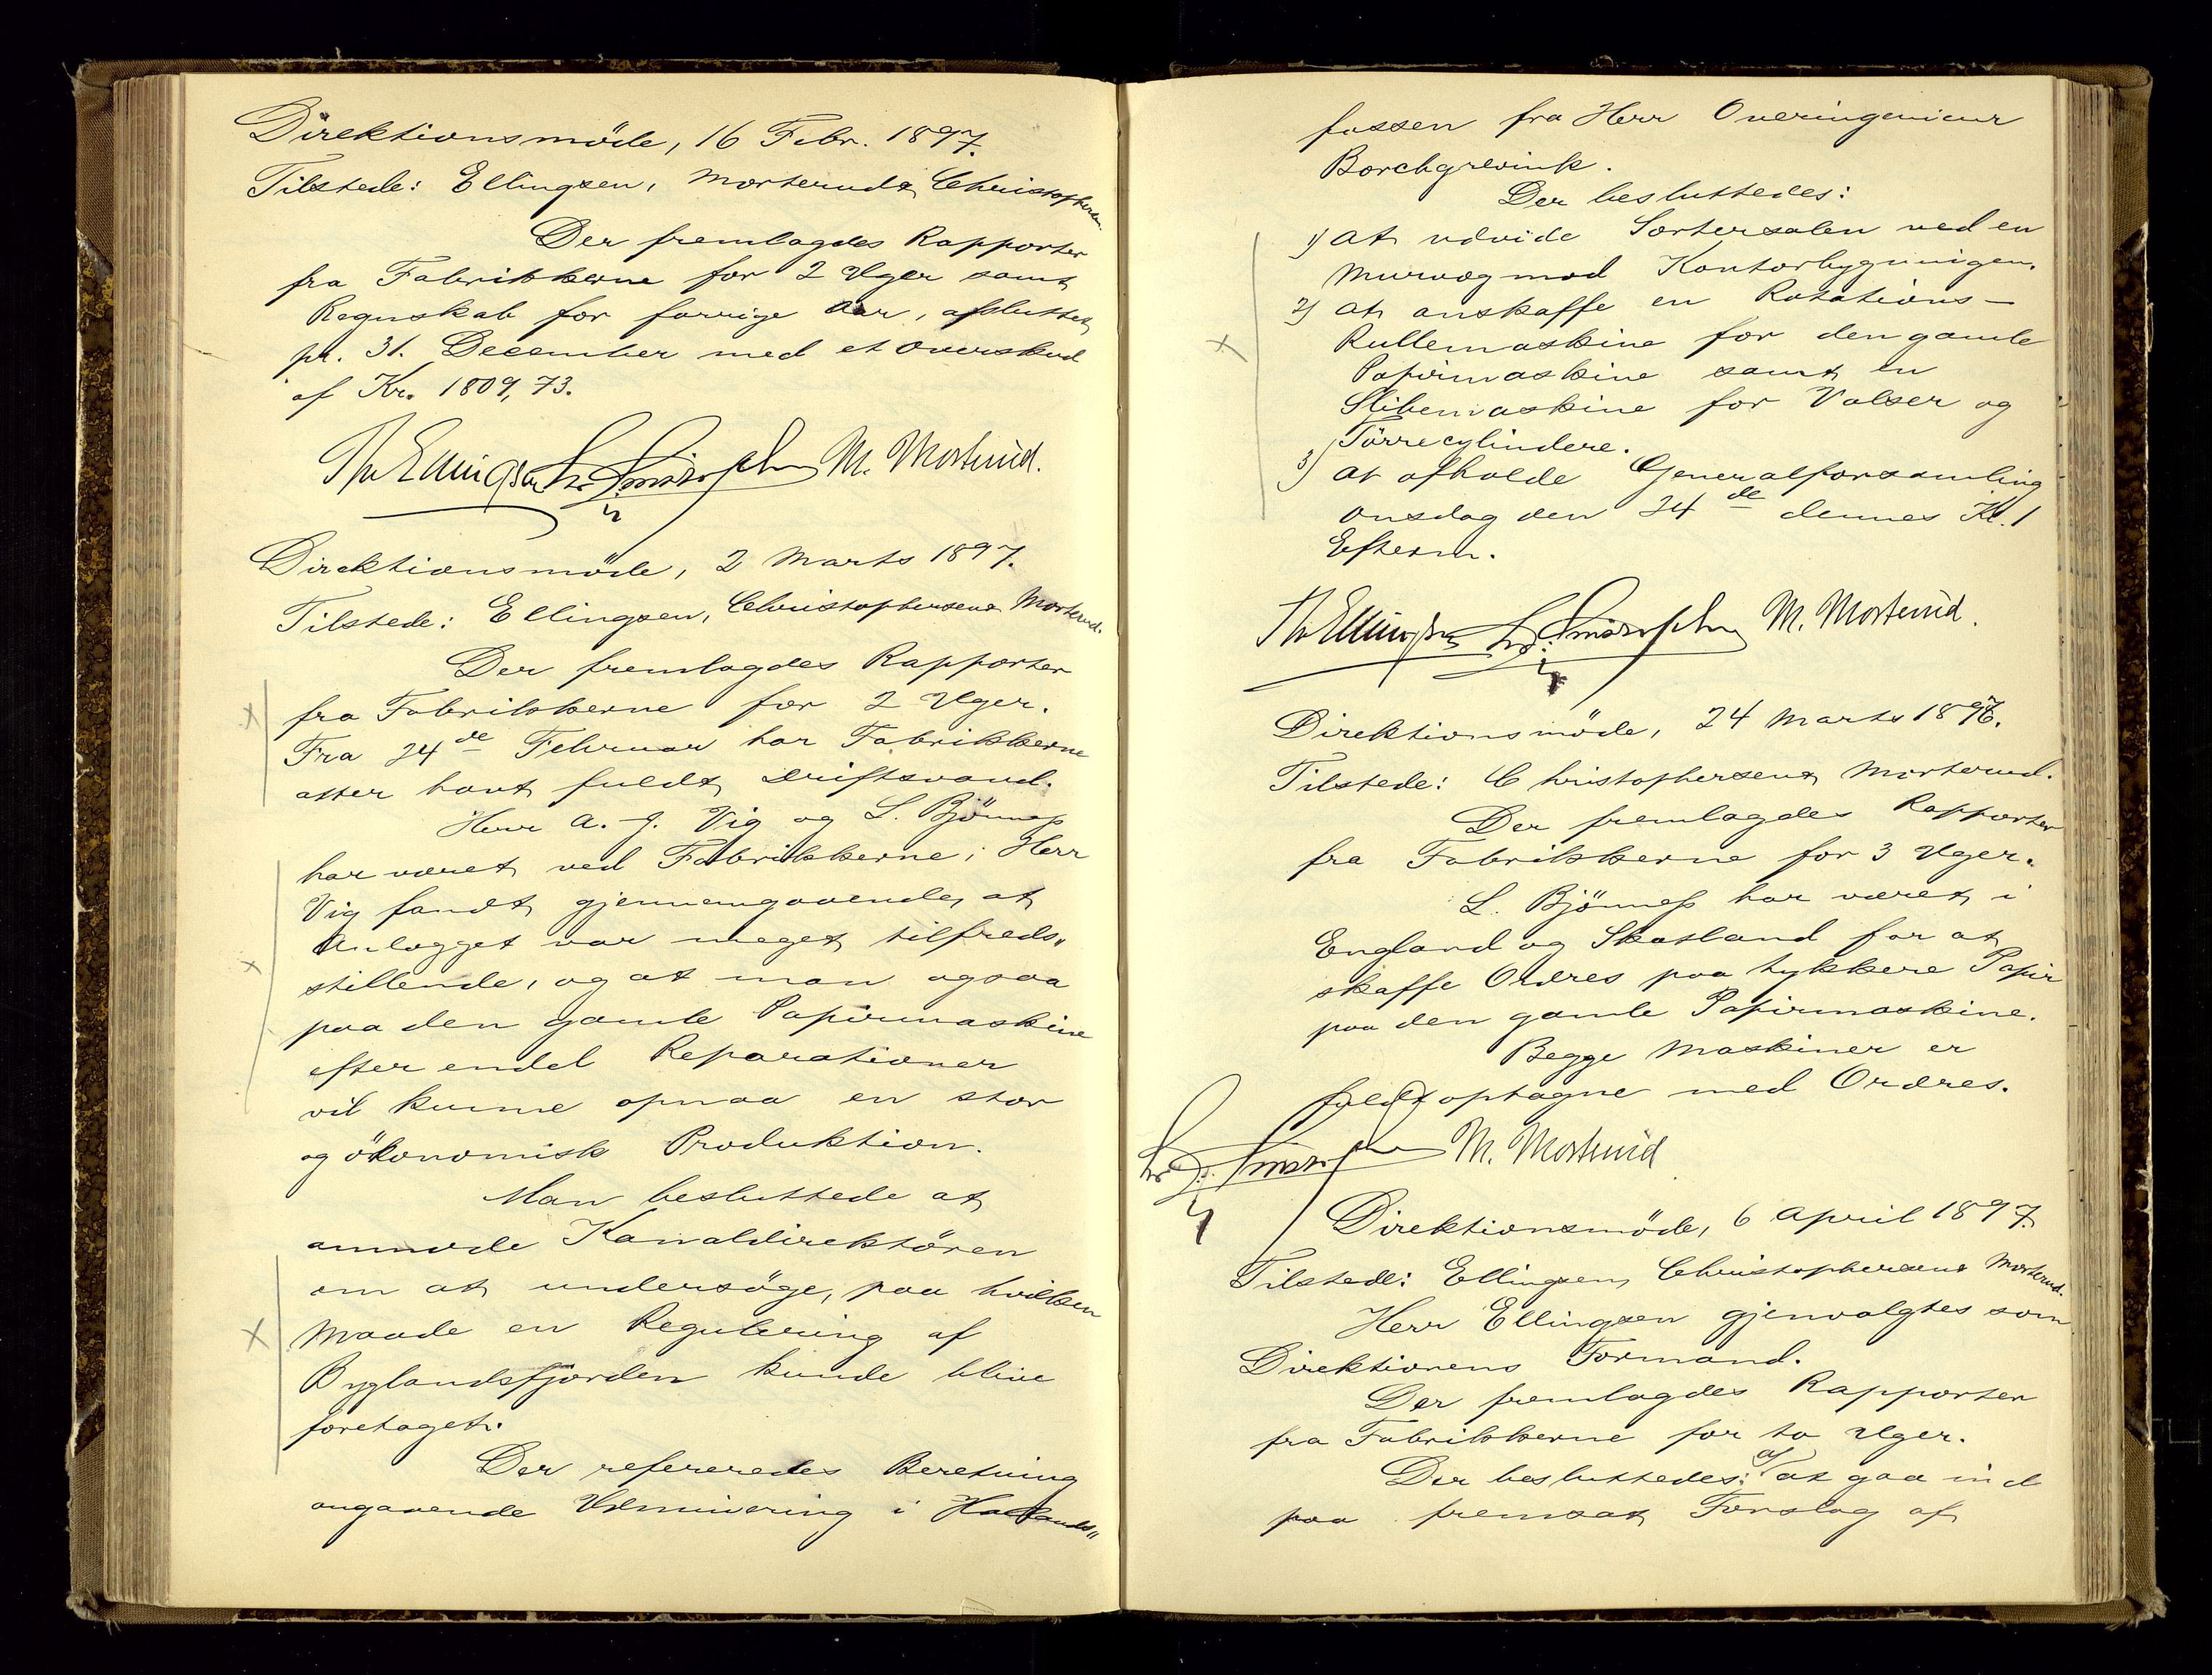 Direktionsmöde, 16 Febr. 1897.
Tilstede: Ellingsen, Mosterud & Christophersen.
Der fremlagdes Rapporter
fra Fabrikkerne for 2 Uger samt
Regnskab for forrige Aar, afsluttet
pr. 31. December med et Overskud
af Kr. 1809,73.
Th Ellingsen Chr. Christophersen M. Mosterud.
Direktionsmöde, 2 Marts 1897.
Tilstede: Ellingsen, Christophersen & Mosterud.
Der fremlagdes Rapporter
fra Fabrikkerne for 2 Uger.
Fra 24de Februar har Fabrikkerne
atter havt fuldt Driftsvand.
Herr A. J. Vig og L. Björness
har været ved Fabrikkerne; Herr
Vig fandt gjennemgaaende, at
Anlægget var meget tilfreds"
stillende, og at man ogsaa
paa den gamle Papirmaskine
efter endel Reparationer
vil kunne opnaa en stor
og ökonomisk Produktion.
Man besluttede at
anmode Kanaldirektören
om at undersöge, paa hvilken
Maade en Regulering af
Byglandsfjorden kunde blive
foretaget.
Der refereredes Beretning
angaaende Udminering i
fossen fra Herr Overingenieur
Borchgrevink.
Der besluttedes:
1) at udvide Sortersalen ved en
Murvæg mod Kontorbygningen.
2) at anskaffe en Rotations-
Rullemaskine for den gamle
Papirmaskine samt en
Slibemaskine for Valser og
Törrecylindere.
3) at afholde Generalforsamling
Onsdag den 24de dennes Kl. 1
Efterm.
Th Ellingsen Chr. Christophersen M. Mosterud.
Direktionsmöde, 24 Marts 1897.
Tilstede: Christophersen & Mosterud.
Der fremlagdes Rapporter
fra Fabrikkerne for 3 Uger.
L. Björness har været i
England og Skotland for at
skaffe Ordres paa tykkere Papir
paa den gamle Papirmaskine.
Begge Maskiner er
fuldt optagne med Ordres.
Chr. Christophersen M. Mosterud
Direktionsmöde, 6 April 1897.
Tilstede: Ellingsen, Christophersen & Mosterud.
Herr Ellingsen gjenvalgtes som
Direktionens Formand.
Der fremlagdes Rapporter
fra Fabrikkerne for to Uger.
Der besluttedes: a) at gaa ind
paa fremsat Forslag af